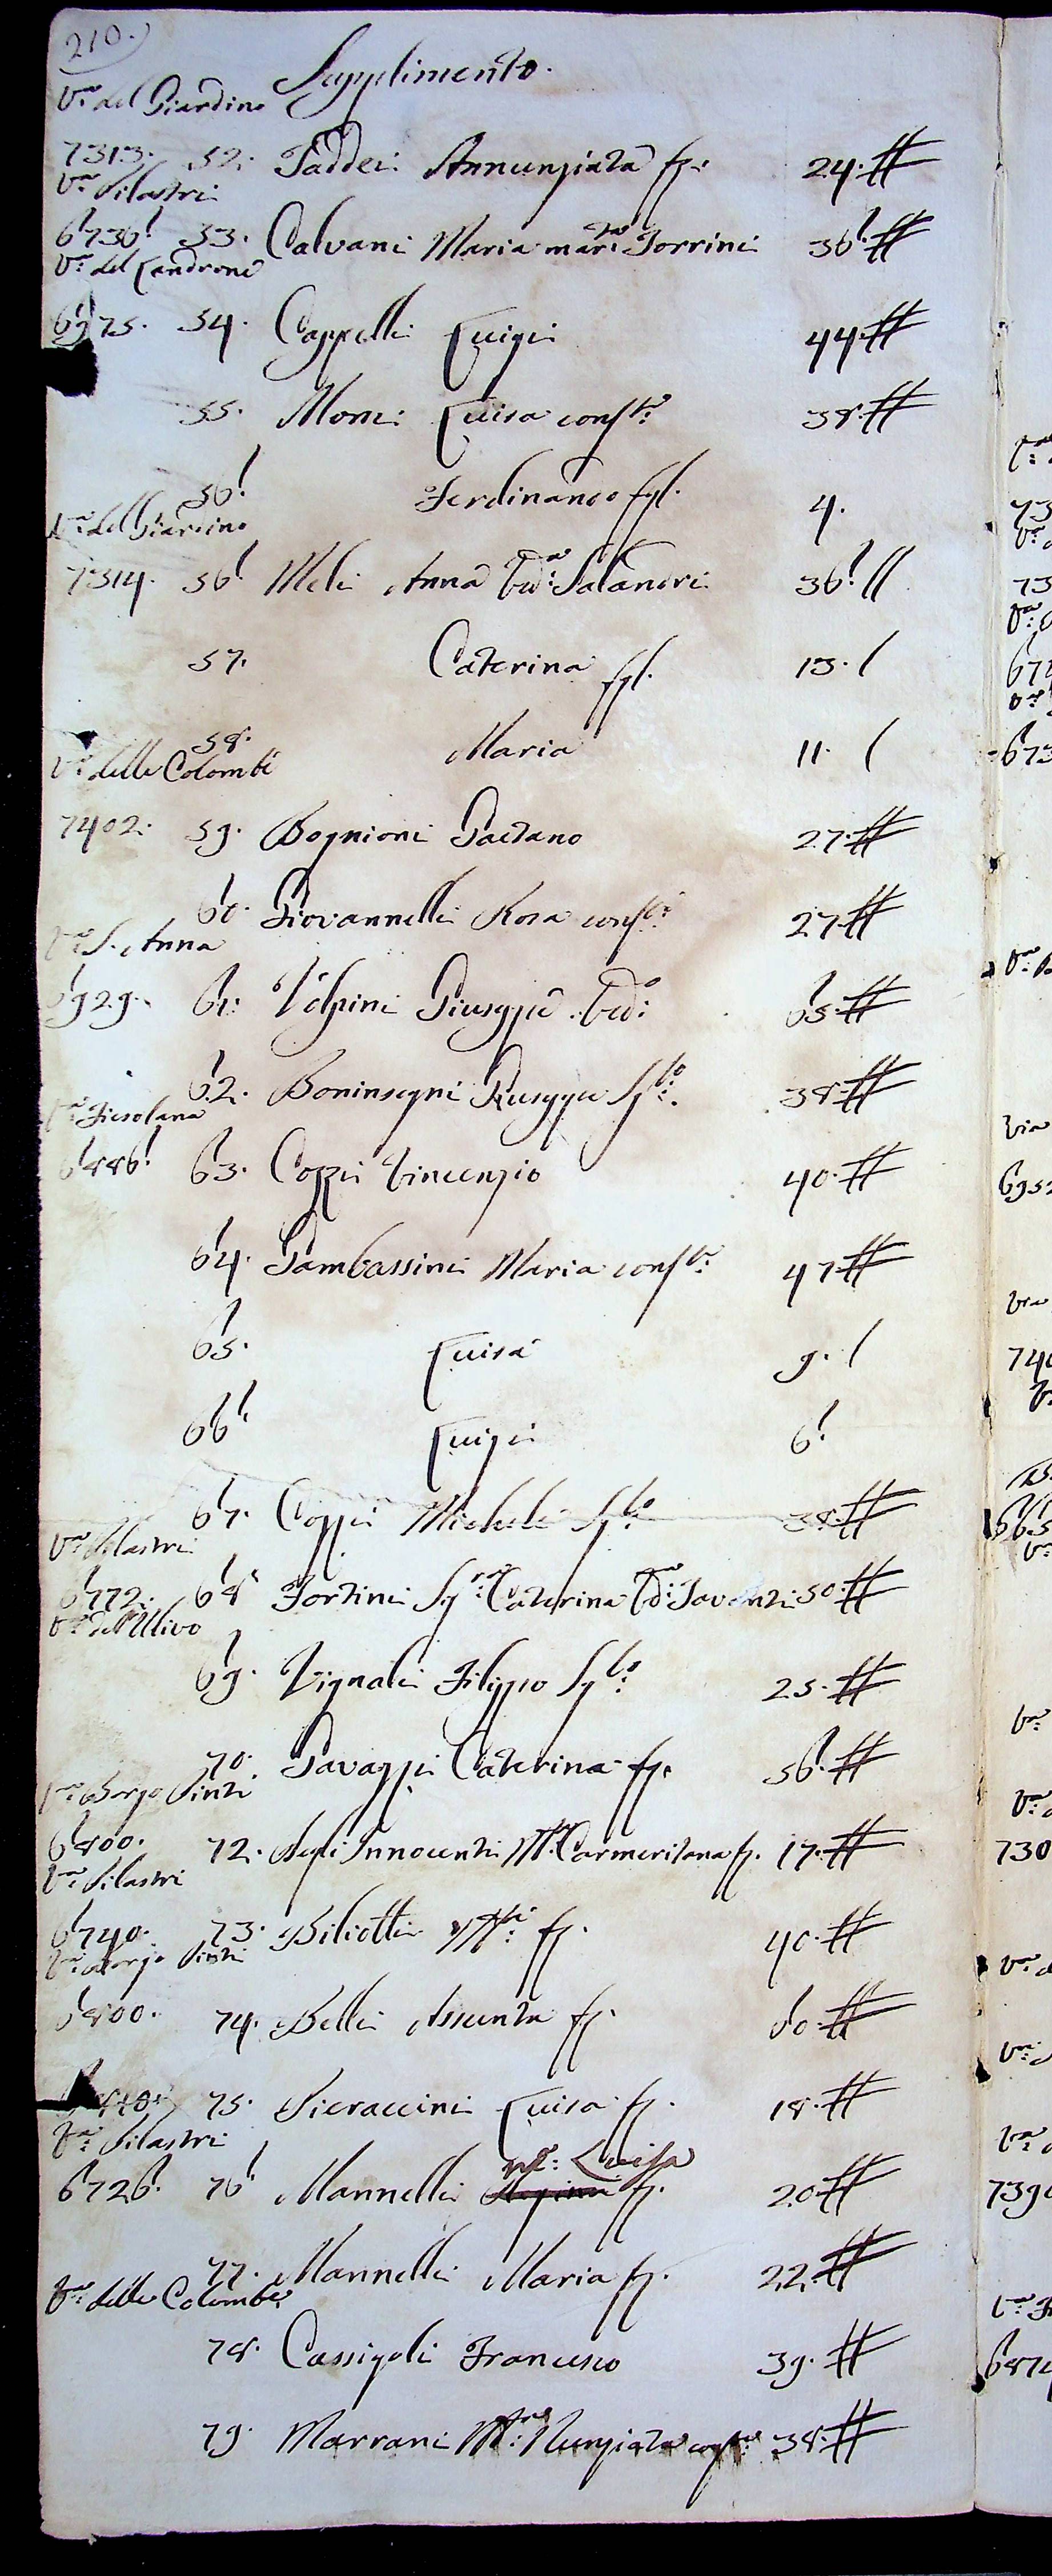 210.
Supplimento.
V.a del Giardino
7313. 52. Taddei Annunziata fz. 24.
V.a Pilastri
6736. 53. Calvani Maria mar.ta Torrini 36.
V.a del Candrone
6975. 54. Cappelli Luigi 44
55. Moni Luisa cons.te 38.
56. Ferdinando fgl. 4.
V.a del Giardino
7314. 56. Meli Anna Ved.a Salandri 36.
57. Caterina fgl. 13.
58. Maria 11.
V.a delle Colombe
7402. 59. Bognioni Gaetano 27.
60. Giovannelli Rosa cons.te 27
V.a S. Anna
6929. 61. Volpini Giuseppe Ved.o 65
62. Boninsegni Giuseppe Sg.lo 38
V.a Fiesolana
6886. 63. Coppi Vincenzio 40.
64. Gambassini Maria cons.te 47
65. Luisa 9.
66. Luigi 6.
67. Coppi Michele Sg.lo 38.
V.a Pilastri
6772. 68 Fortini Sg.ra Caterina Vd.a Paventi 50
V.a dell'Ulivo
69. Vignali Filippo Sg.lo 25.
70. Pavazzi Caterina fz. 56.
V.a Borgo Pinti
6800. 72. Degl'Innocenti M.a Carmeritana fz. 17.
V.a Pilastri
6740. 73. Biliotti fz. 40.
V.a Borgo Pinti
6800. 74. Belli Assunta fz. 60.
75. Pieraccini Luisa fz. 18.
V.a Pilastri
M.a: Luisa
6726. 76 Mannelli fz. 20
77. Mannelli Maria fz. 22.
V.a delle Colombe
78. Cassigoli Francesco 39.
79. Marrani Nunziata 38.